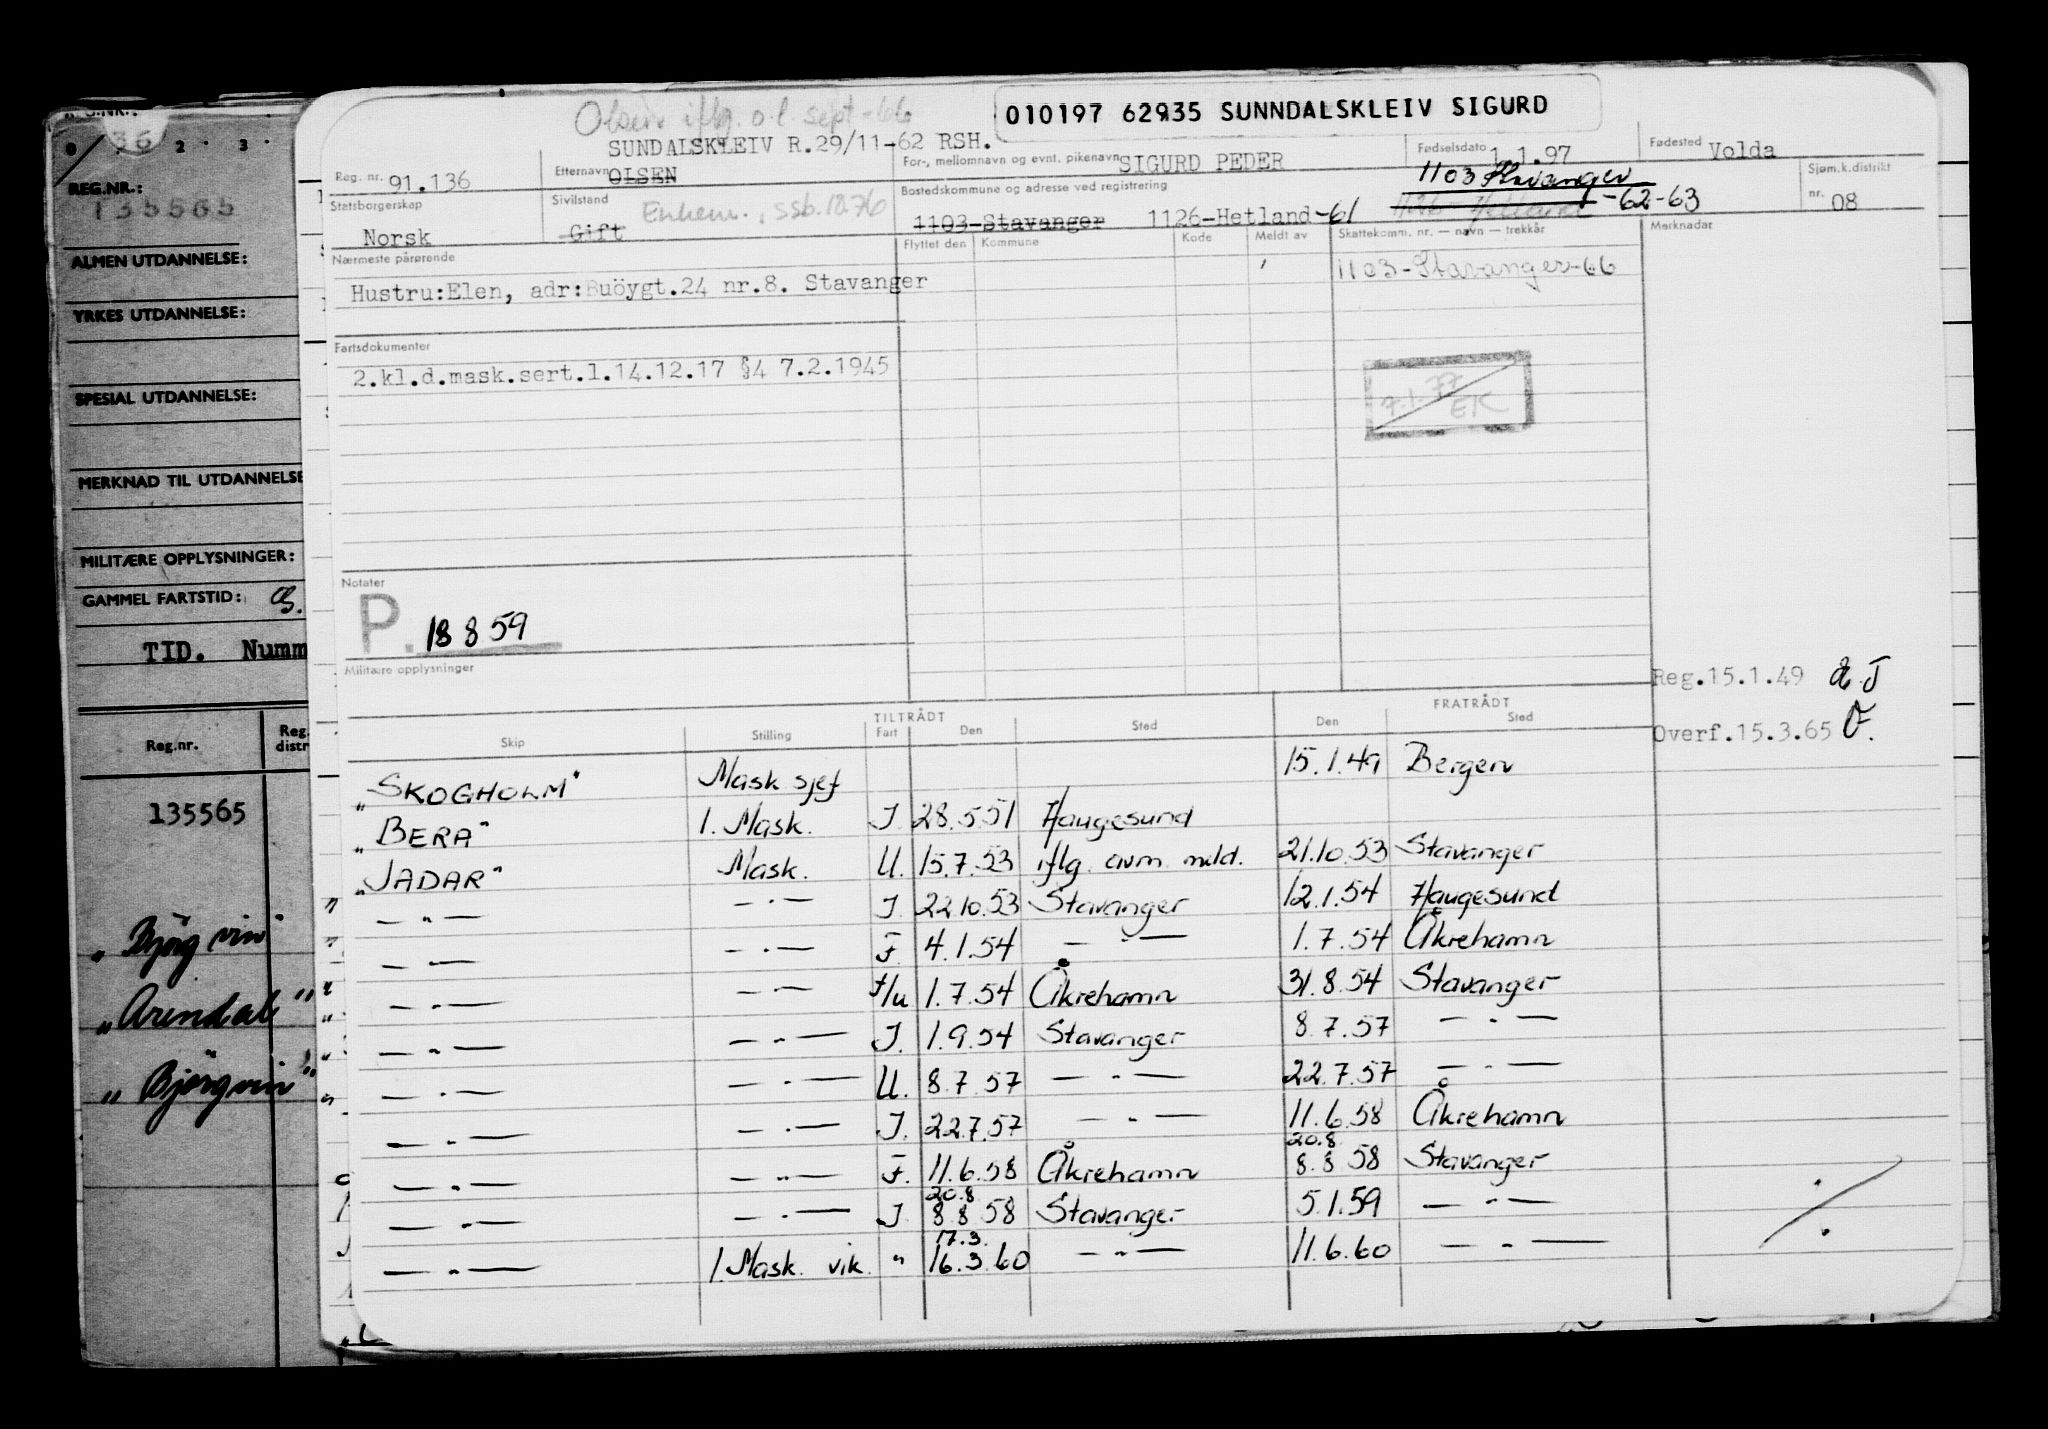 REG.NR.:
135565
ALMEN UTDANNELSE:
YRKES UTDANNELSE:
SPESIAL UTDANNELSE:
MERKNAD TIL UTDANNELSE
MILITÆRE OPPLYSNINGER:
GAMMEL FARTSTID:
TID. Numm
Reg.nr. Reg. distr
135565
"Bjørgvin"
"Arendal"
"Bjørgvin"
Olsen iflg. o.l. sept-66
010197 62935 SUNNDALSKLEIV SIGURD
SUNDALSKLEIV R.29/11-62 RSH.
Reg. nr. 91.136 Etternavn OLSEN For-, mellomnavn og evnt. pikenavn SIGURD PEDER Fødselsdato 1.1.97 Fødested Volda
Statsborgerskap Norsk Sivilstand Gift Enkem., ssb.1276 Bostedskommune og adresse ved registrering 1103-Stavanger 1126-Hetland-61 1103 Stavanger 1126-Hetland-62-63 Sjøm.k.distrikt nr. 08
Nærmeste pårørende Flyttet den Kommune Kode Meldt av Skattekomm. nr. — navn — trekkår Merknader
Hustru:Elen, adr:Buöygt.24 nr.8. Stavanger 1103-Stavanger-66
Fartsdokumenter
2.kl.d.mask.sert.l.14.12.17 §4 7.2.1945
7.1.77 EK
Notater
P. 18 8 59
Militære opplysninger
Reg.15.1.49
Overf.15.3.65
TILTRÅDT FRATRÅDT
Skip Stilling Fart Den Sted Den Sted
"SKOGHOLM" Mask sjef 15.1.49 Bergen
"BERA" 1. Mask. J. 28.5.51 Haugesund
"JADAR" Mask. U. 15.7.53 iflg. avm. meld. 21.10.53 Stavanger
— " — — " — J. 22.10.53 Stavanger 12.1.54 Haugesund
— " — — " — F. 4.1.54 — " — 1.7.54 Åkrehamn
— " — — " — F/u 1.7.54 Åkrehamn 31.8.54 Stavanger
— " — — " — J. 1.9.54 Stavanger 8.7.57 — " —
— " — — " — U. 8.7.57 — " — 22.7.57 — " —
— " — — " — J. 22.7.57 — " — 11.6.58 Åkrehamn
— " — — " — F. 11.6.58 Åkrehamn 20.8. 8.8 58 Stavanger
— " — — " — J. 20.8. 8.8 58 Stavanger 5.1.59 — " —
— " — 1. Mask. vik. " 17.3. 16.3.60 — " — 11.6.60 — " —